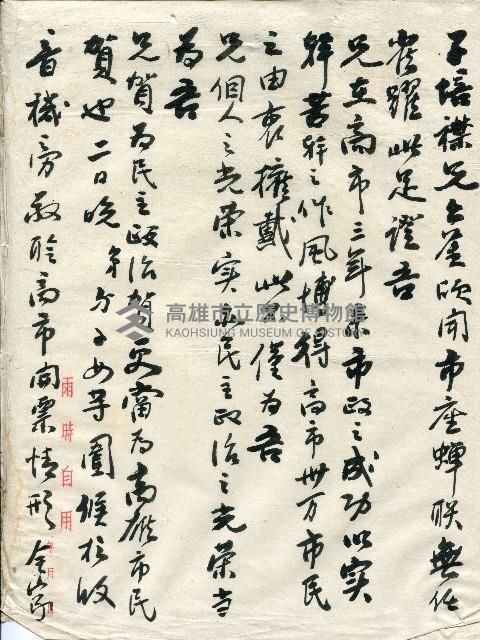 子培襟兄大鑒欣聞市座蟬联無任
雀躍此足證吾
兄在高市三年來市政之成功以实
幹苦幹之作風博得高市卅万市民
之由衷擁戴此不僅为吾
兄個人之光荣实民主政治之光荣当
为吾
兄賀为民主政治賀更當为高雄市民
賀也二日晚弟与子女等圍候於收
音機旁敬聆高市開票情形全家
雨時自用
年月
高雄市立歷史博物館
KAOHSIUNG MUSEUM OF HISTORY